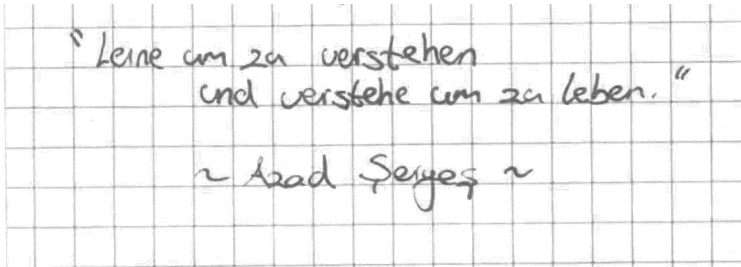 "Lerne um zu verstehen
und verstehe um zu leben."
~ Azad Şerges ~